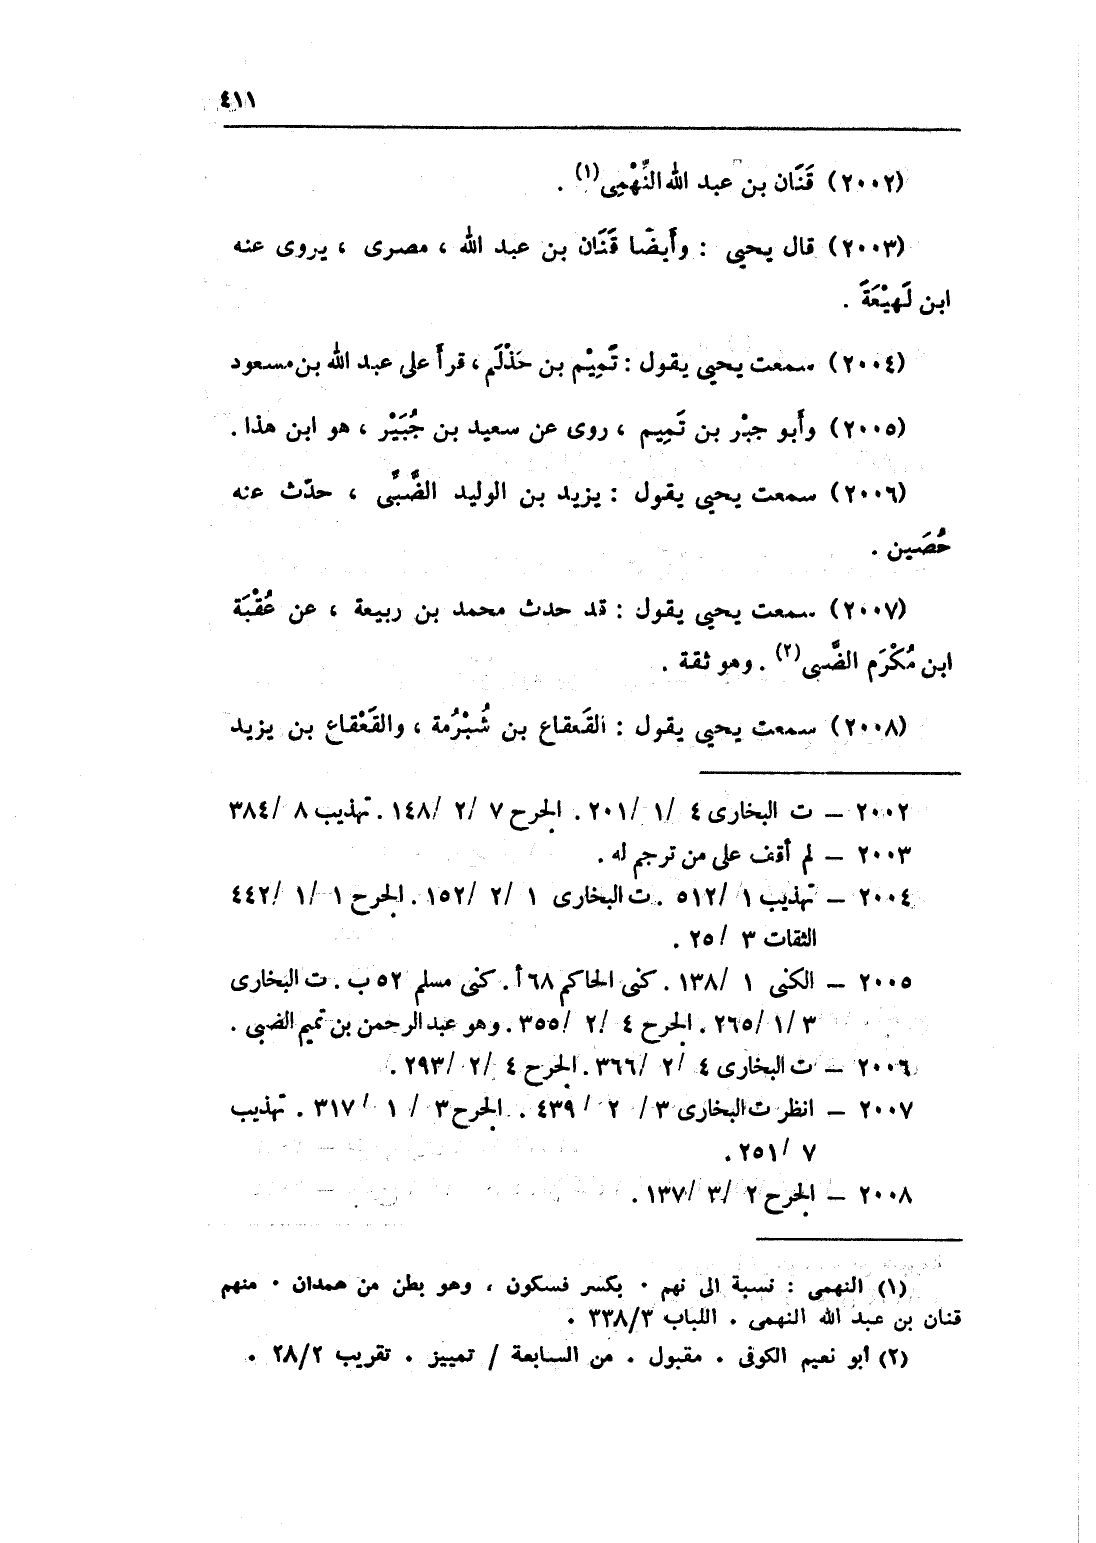 ٤١١
(٢٠٠٢) قَنَان بن عبد الله النِّهْمِى(١) .
(٢٠٠٣) قال يحيى : وأَيضًا قَنَان بن عبد الله ، مصرى ، يروى عنه
ابن لَهِيْعَةَ .
(٢٠٠٤) سمعت يحيى يقول : تَمِيْم بن حَذْلَم ، قرأَ على عبد الله بن مسعود
(٢٠٠٥) وأَبو جبْر بن تَمِيم ، روى عن سعيد بن جُبَيْر ، هو ابن هذا .
(٢٠٠٦) سمعت يحيى يقول : يزيد بن الوليد الضَّبِّى ، حدّث عنه
حُصَين .
(٢٠٠٧) سمعت يحيى يقول : قد حدث محمد بن ربيعة ، عن عُقْبَة
ابن مُكْرَم الضَّبى(٢) . وهو ثقة .
(٢٠٠٨) سمعت يحيى يقول : القَعقاع بن شُبْرُمة ، والقَعْقاع بن يزيد
٢٠٠٢ – ت البخارى ٤ /١ /٢٠١ . الجرح ٧ /٢ /١٤٨ . تهذيب ٨ /٣٨٤
٢٠٠٣ – لم أقف على من ترجم له .
٢٠٠٤ – تهذيب ١ /٥١٢ . ت البخارى ١ /٢ /١٥٢ . الجرح ١ /١ /٤٤٢
الثقات ٣ /٢٥ .
٢٠٠٥ – الكنى ١ /١٣٨ . كنى الحاكم ٦٨ أ . كنى مسلم ٥٢ ب . ت البخارى
٣ /١ /٢٦٥ . الجرح ٤ /٢ /٣٥٥ . وهو عبد الرحمن بن تميم الضبى .
٢٠٠٦ – ت البخارى ٤ /٢ /٣٦٦ . الجرح ٤ /٢ /٢٩٣ .
٢٠٠٧ – انظر ت البخارى ٣ / ٢ /٤٣٩ . الجرح ٣ / ١ /٣١٧ . تهذيب
٧ /٢٥١ .
٢٠٠٨ – الجرح ٢ /٣ /١٣٧ .
(١) النهمى : نسبة الى نهم ٠ بكسر فسكون ، وهو بطن من همدان ٠ منهم
قنان بن عبد الله النهمى . اللباب ٣/ ٣٣٨ .
(٢) أبو نعيم الكوفى . مقبول . من السابعة / تمييز . تقريب ٢/ ٢٨ .